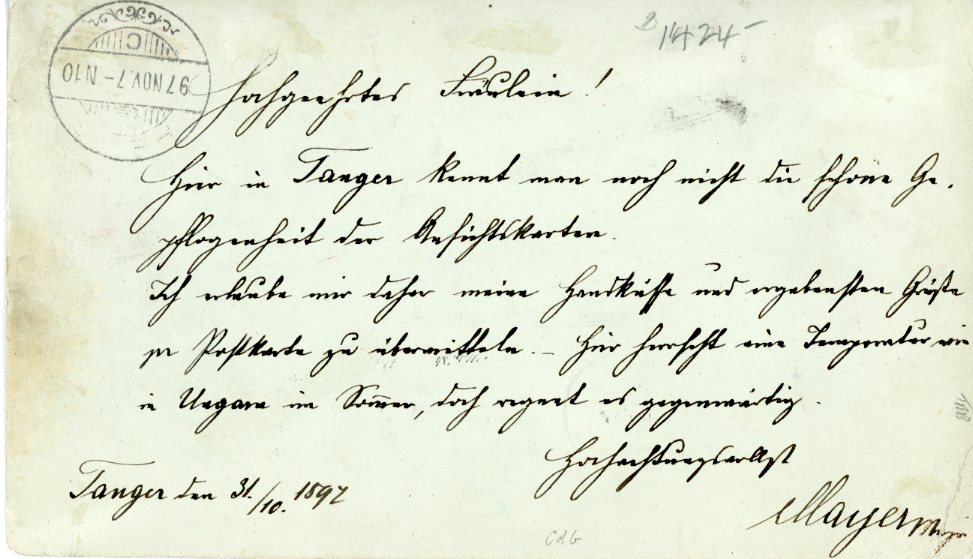 1424-
C
97 NOV. 7 - N10
Hochgeehrtes Fräulein!
Hier in Tanger kennt man noch nicht die schöne Ge-
pflogenheit der Ansichtskarten.
Ich erlaube mir daher meine Handküsse und ergebensten Grüße
pr Postkarte zu übermitteln. – Hier herrscht eine Temperatur wie
in Ungarn im Sommer, doch regnet es gegenwärtig.
Hochachtungsvollst
Tanger den 31./10. 1897
Mayer
CdG